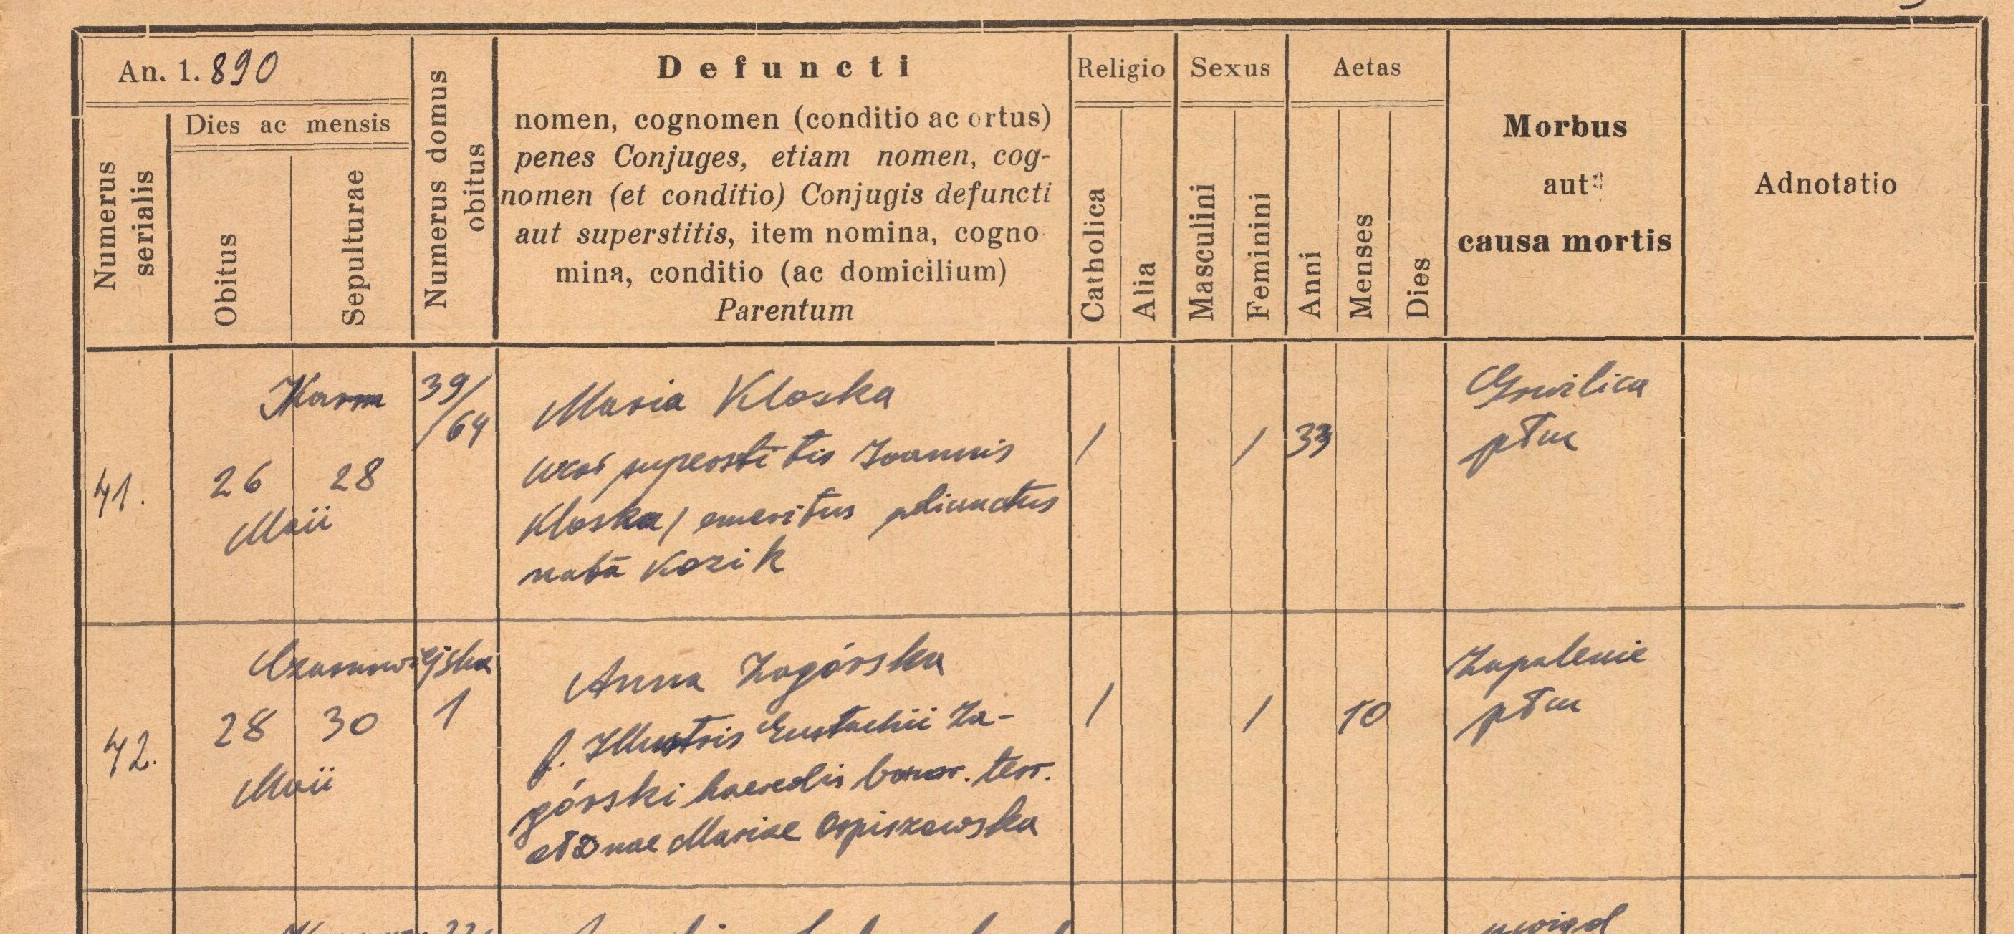 An. 1.890
Dies ac mensis
Numerus serialis
Obitus
Sepulturae
Numerus domus obitus
Defuncti
nomen, cognomen (conditio ac ortus)
penes Conjuges, etiam nomen, cog-
nomen (et conditio) Conjugis defuncti
aut superstitis, item nomina, cogno
mina, conditio (ac domicilium)
Parentum
Religio
Catholica
Alia
Sexus
Masculini
Feminini
Aetas
Anni
Menses
Dies
Morbus
aut
causa mortis
Adnotatio
41.
Karm
39/
/64
26 28
Maii
Maria Kloska
uxor superstitis Joannis
Kloska / emeritus adiunctus
nata Kozik
/
/
33
Gruzlica
płuc
42.
Czarnowiejska
28 30 1
Maii
Anna Zagórska
f. Illustris Eustachii Za-
górski haeredis bonor. terr.
et Dnae Mariae Ospiszewska
/
/
10
Zapalenie
płuc
uwiąd